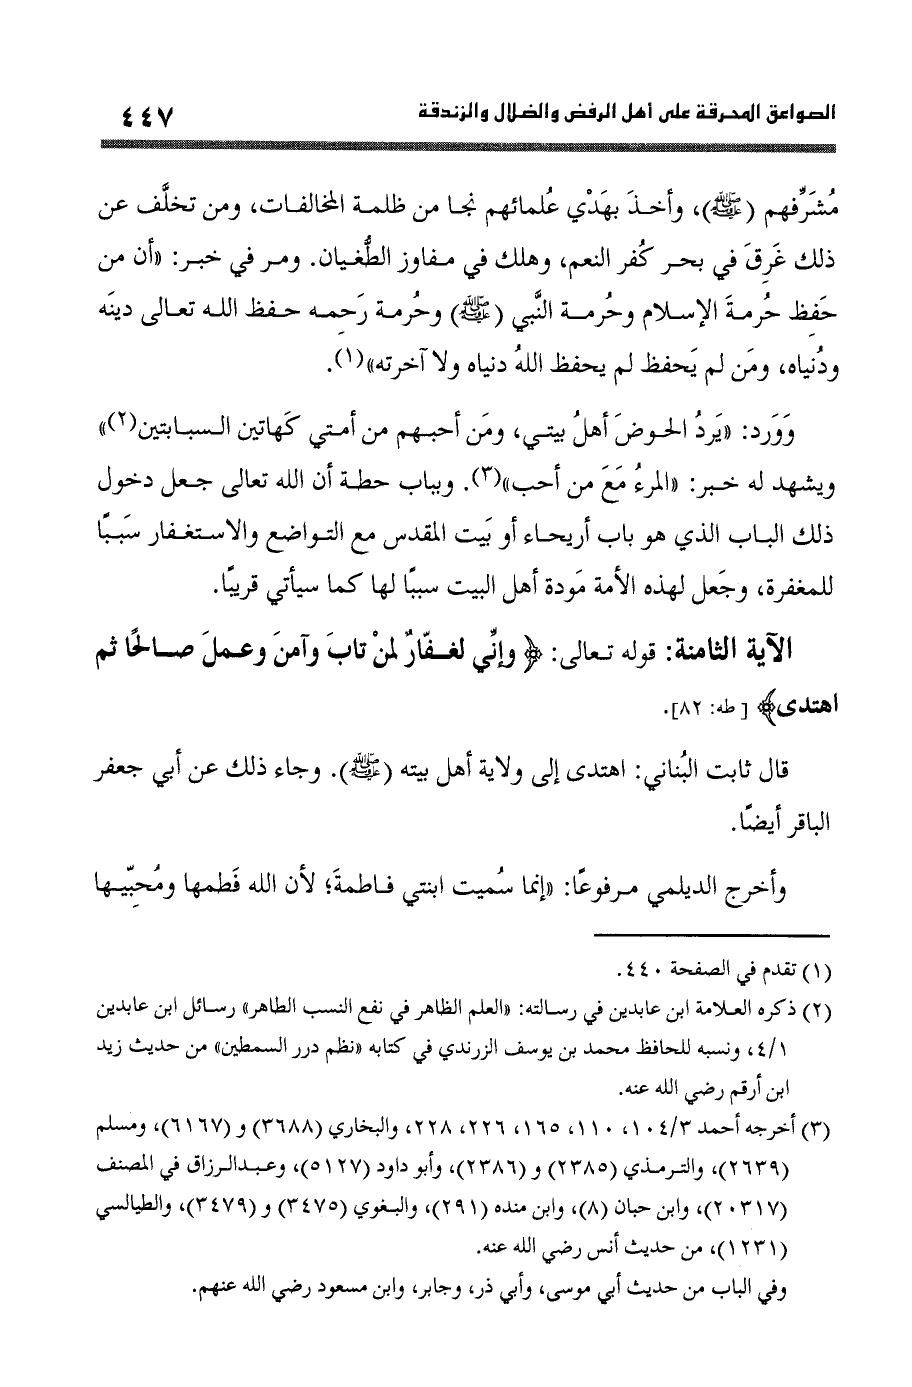 الصواعق المحرقة على أهل الرفض والضلال والزندقة ٤٤٧
مُشَرِّفهم (ﷺ)، وأخذَ بهَدْي عُلمائهم نجا من ظلمة المخالفات، ومن تخلَّف عن
ذلك غَرِقَ في بحر كُفر النعم، وهلك في مفاوز الطُّغيان. ومر في خبر: «أن من
حَفِظ حُرمةَ الإسلام وحُرمة النَّبي (ﷺ) وحُرمة رَحِمه حفظ الله تعالى دينَه
ودُنياه، ومَن لم يَحفظ لم يحفظ اللهُ دنياه ولا آخرته»(١).
وَوَرد: «يَرِدُ الحوضَ أهلُ بيتي، ومَن أحبهم من أمتي كَهاتين السبابتين(٢)»
ويشهد له خبر: «المرءُ مَعَ من أحب»(٣). وبباب حطة أن الله تعالى جعل دخول
ذلك الباب الذي هو باب أريحاء أو بَيت المقدس مع التواضع والاستغفار سَببًا
للمغفرة، وجَعل لهذه الأمة مَودة أهل البيت سببًا لها كما سيأتي قريبًا.
الآية الثامنة: قوله تعالى: ﴿وإنِّي لغفّارٌ لمنْ تابَ وآمنَ وعملَ صالحًا ثم
اهتدى﴾ [طه: ٨٢].
قال ثابت البُناني: اهتدى إلى ولاية أهل بيته (ﷺ). وجاء ذلك عن أبي جعفر
الباقر أيضًا.
وأخرج الديلمي مرفوعًا: «إنما سُميت ابنتي فاطمةَ؛ لأن الله فَطمها ومُحبِّيها
(١) تقدم في الصفحة ٤٤٠.
(٢) ذكره العلامة ابن عابدين في رسالته: «العلم الظاهر في نفع النسب الطاهر» رسائل ابن عابدين
٤/١، ونسبه للحافظ محمد بن يوسف الزرندي في كتابه «نظم درر السمطين» من حديث زيد
ابن أرقم رضي الله عنه.
(٣) أخرجه أحمد ١٠٤/٣، ١١٠، ١٦٥، ٢٢٦، ٢٢٨، والبخاري (٣٦٨٨) و (٦١٦٧)، ومسلم
(٢٦٣٩)، والترمذي (٢٣٨٥) و (٢٣٨٦)، وأبو داود (٥١٢٧)، وعبدالرزاق في المصنف
(٢٠٣١٧)، وابن حبان (٨)، وابن منده (٢٩١)، والبغوي (٣٤٧٥) و (٣٤٧٩)، والطيالسي
(١٢٣١)، من حديث أنس رضي الله عنه.
وفي الباب من حديث أبي موسى، وأبي ذر، وجابر، وابن مسعود رضي الله عنهم.